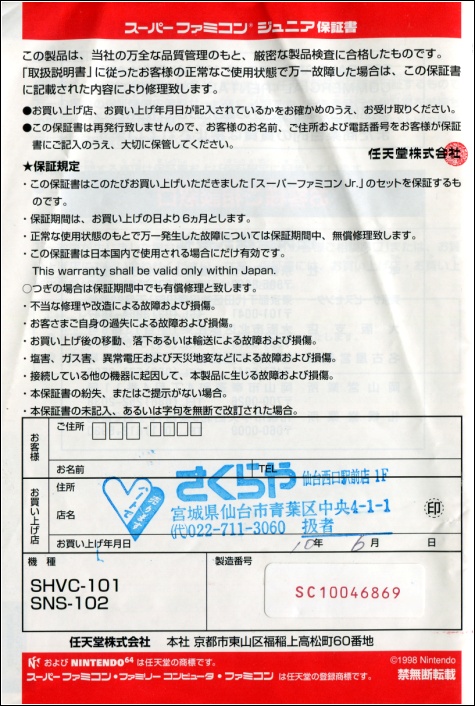 スーパーファミコン® ジュニア保証書
この製品は、当社の万全な品質管理のもと、厳密な製品検査に合格したものです。
「取扱説明書」に従ったお客様の正常なご使用状態で万一故障した場合は、この保証書
に記載された内容により修理致します。
●お買い上げ店、お買い上げ年月日が記入されているかをお確かめのうえ、お受け取りください。
●この保証書は再発行致しませんので、お客様のお名前、ご住所および電話番号をお客様が保証
書にご記入のうえ、大切に保管してください。
任天堂株式会社
★保証規定
・この保証書はこのたびお買い上げいただきました「スーパーファミコンJr.」のセットを保証するも
のです。
・保証期間は、お買い上げの日より6ヵ月とします。
・正常な使用状態のもとで万一発生した故障については保証期間中、無償修理致します。
・この保証書は日本国内で使用される場合にだけ有効です。
This warranty shall be valid only within Japan.
○つぎの場合は保証期間中でも有償修理と致します。
・不当な修理や改造による故障および損傷。
・お客さまご自身の過失による故障および損傷。
・お買い上げ後の移動、落下あるいは輸送による故障および損傷。
・塩害、ガス害、異常電圧および天災地変などによる故障および損傷。
・接続している他の機器に起因して、本製品に生じる故障および損傷。
・本保証書の紛失、またはご提示がない場合。
・本保証書の未記入、あるいは字句を無断で改訂された場合。
お客様
ご住所 □□□-□□□□
お名前 TEL
お買い上げ店
住所
店名
さくらや 仙台西口駅前店 1F
宮城県仙台市青葉区中央4-1-1
㈹022-711-3060 扱者
印
お買い上げ年月日 10年 6月 日
機種
SHVC-101
SNS-102
製造番号
SC10046869
任天堂株式会社 本社 京都市東山区福稲上高松町60番地
および NINTENDO64 は任天堂の商標です。
スーパーファミコン・ファミリーコンピュータ・ファミコン は任天堂の登録商標です。
©1998 Nintendo
禁無断転載